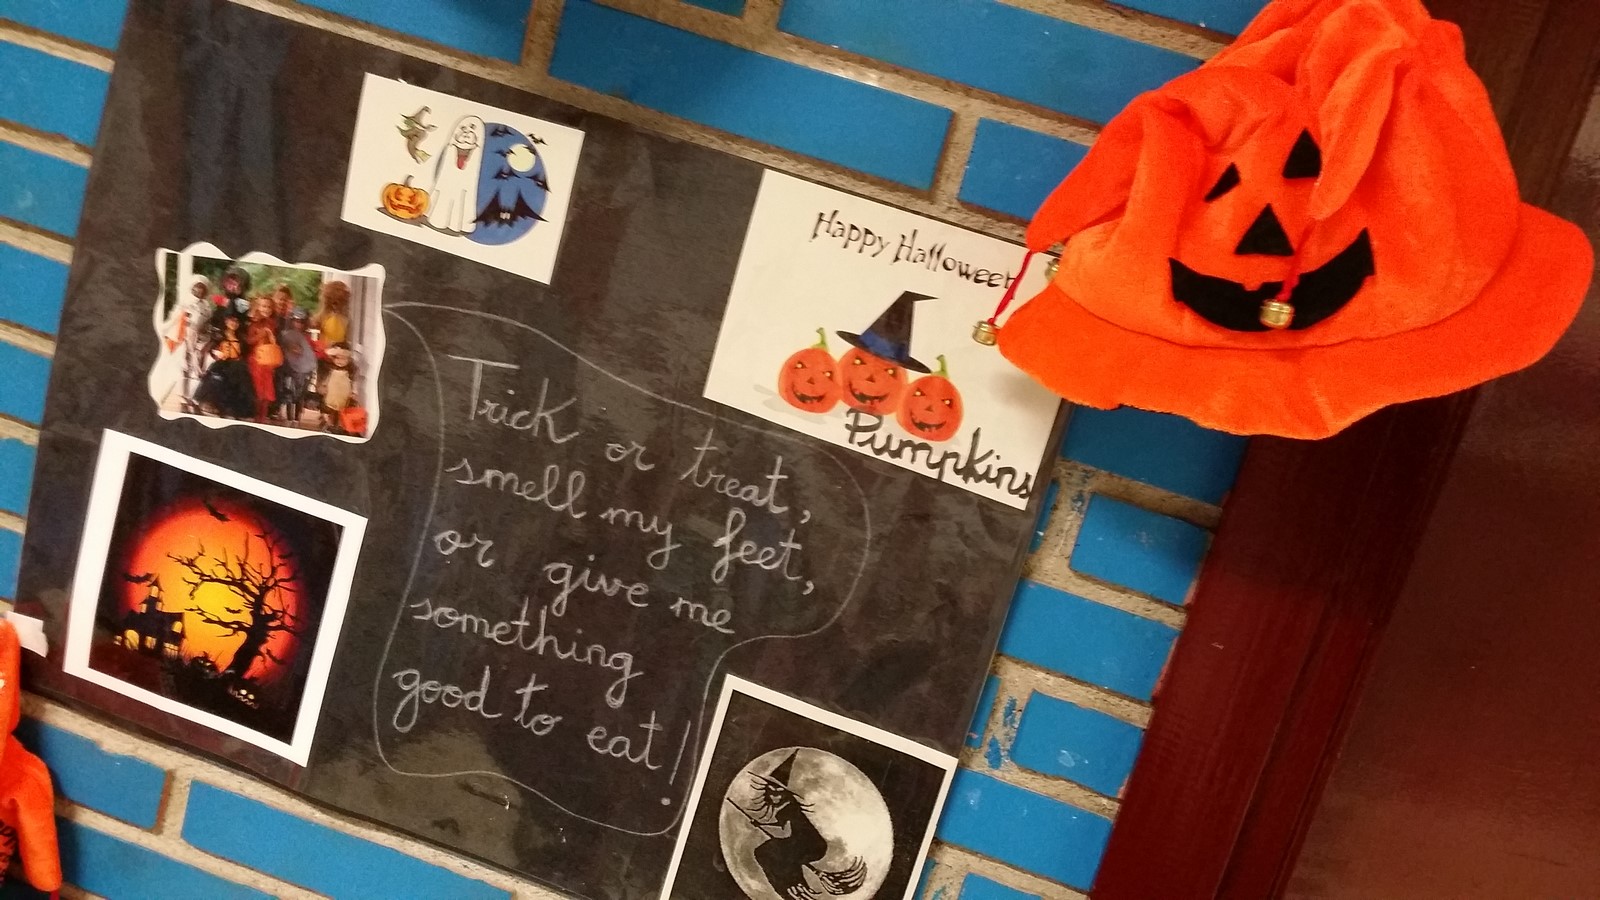 Happy Halloween
Pumpkins
Trick or treat,
smell my feet,
or give me
something
good to eat!